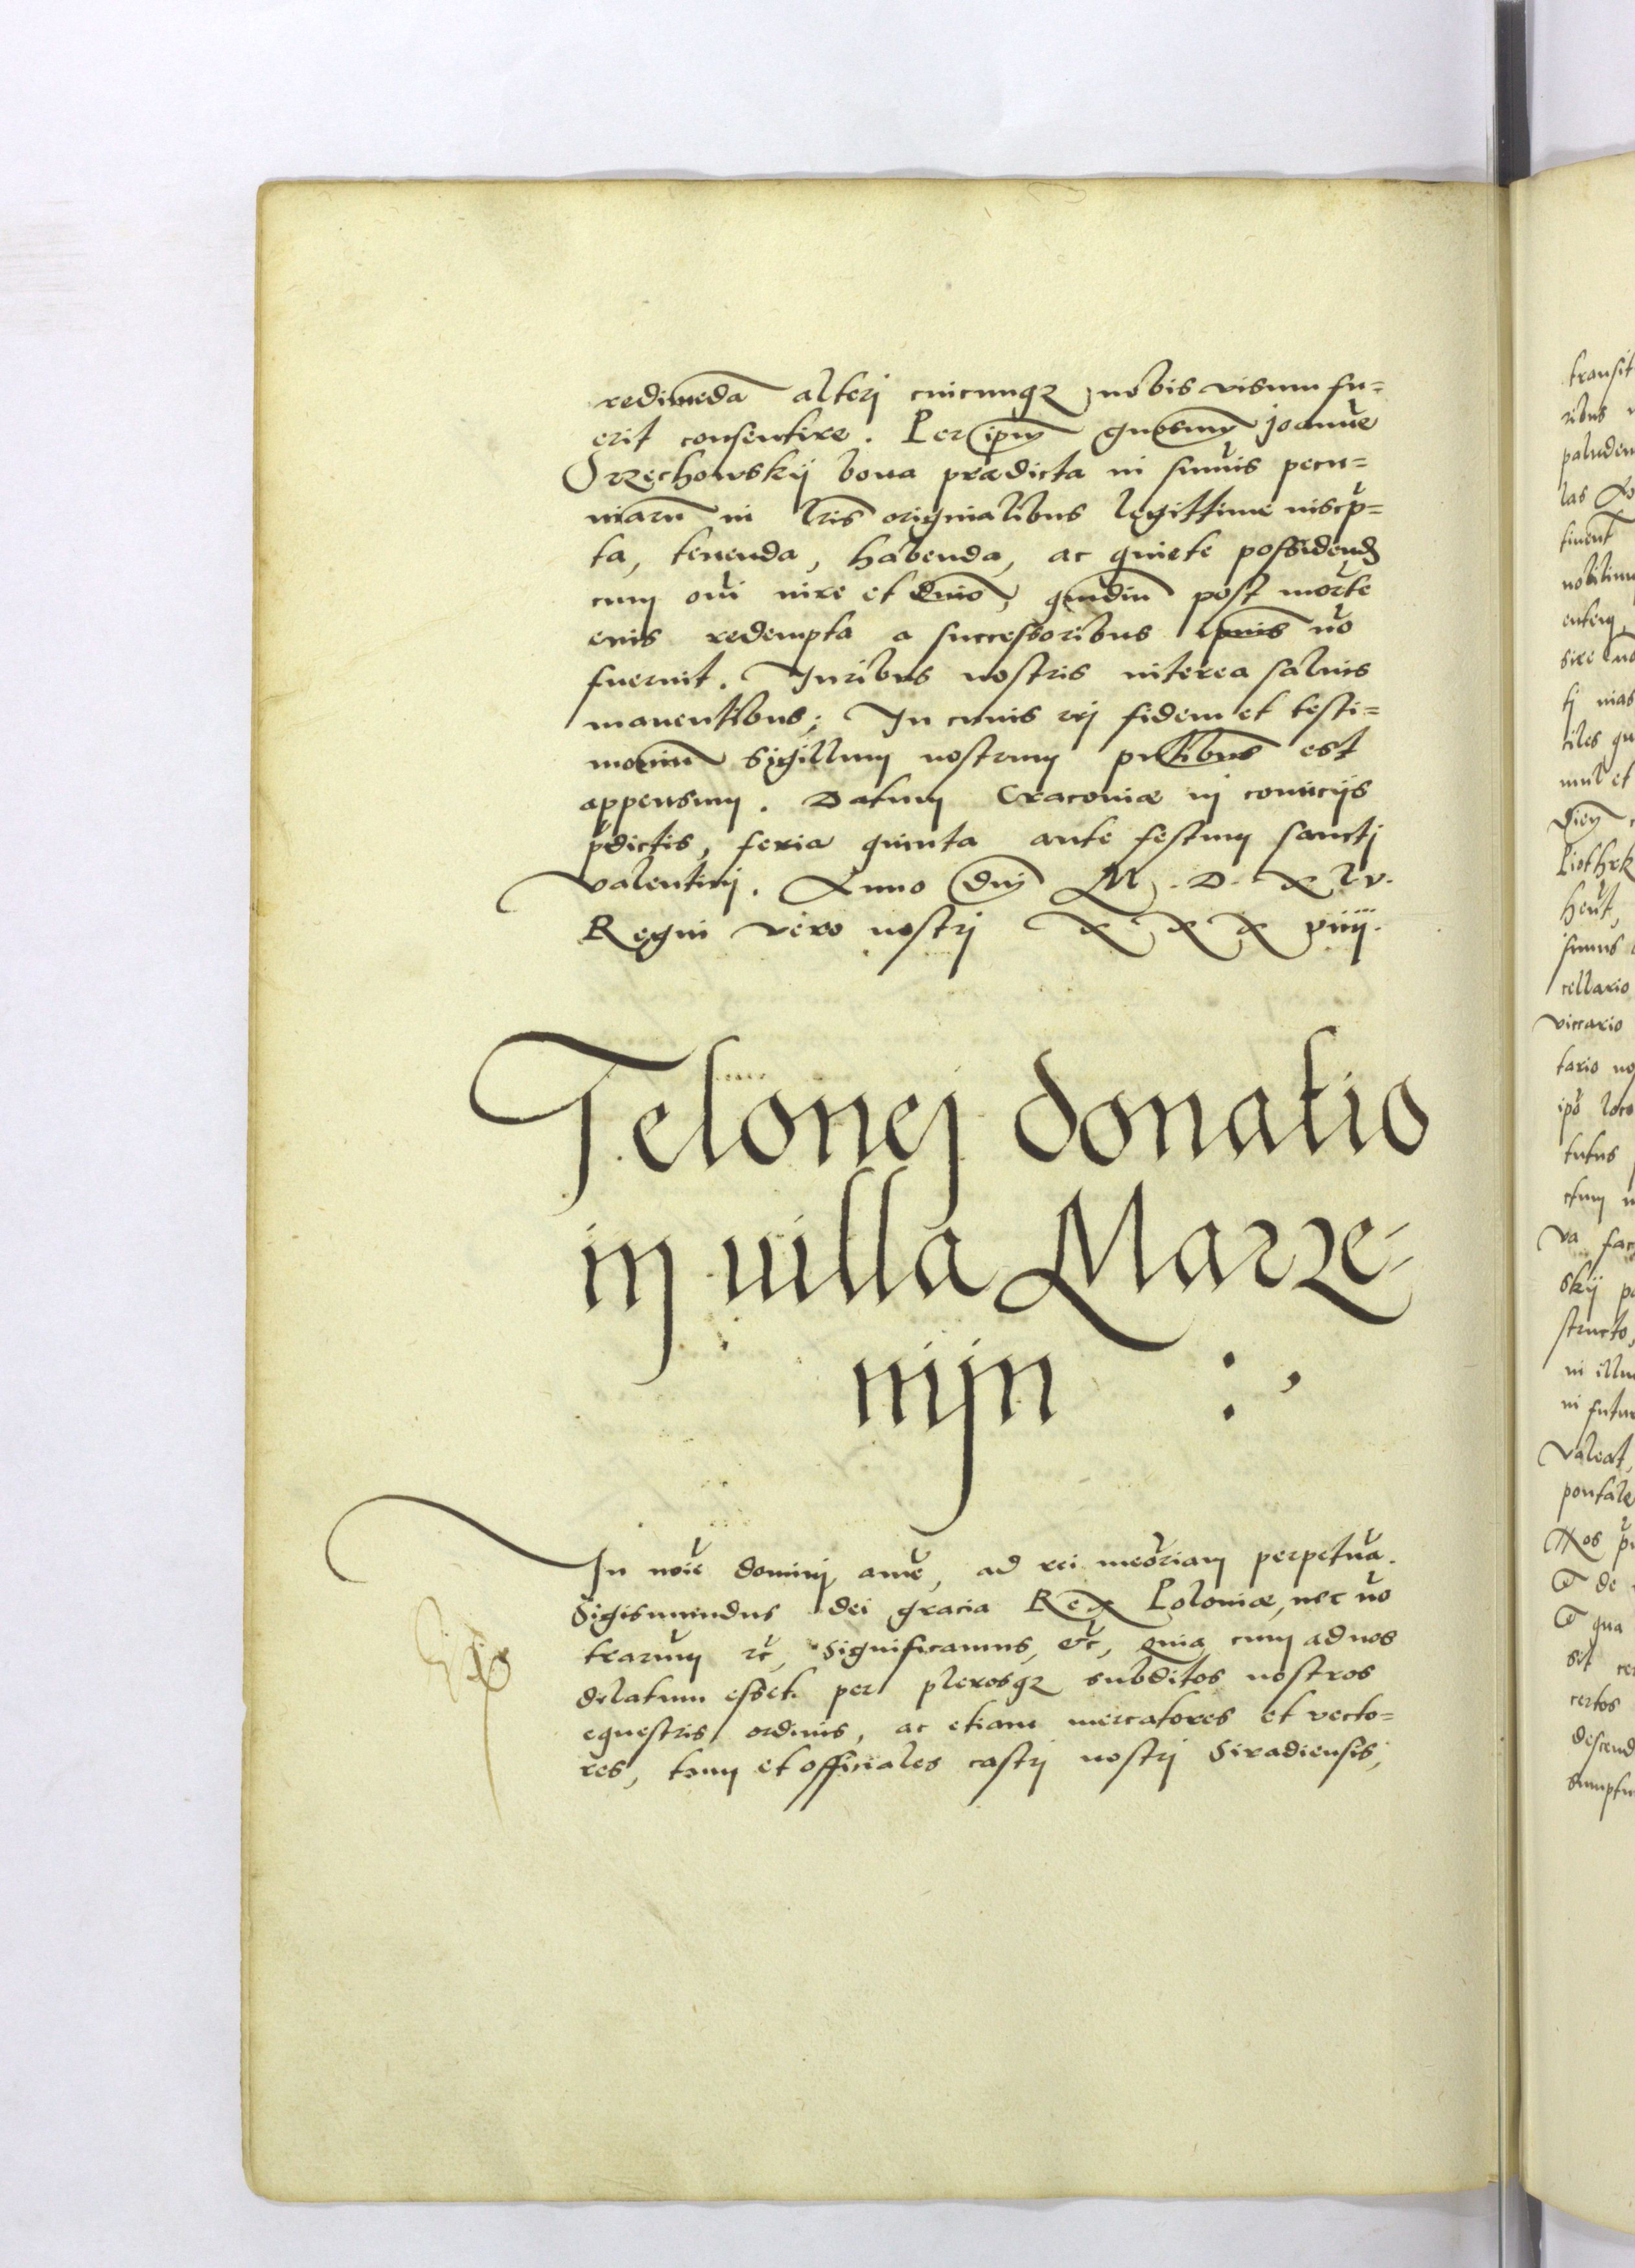 redimẽdã alterj cuicunqz nobis visum fu=
erit consentire. Per ipm̃ gñosum Joannẽ
Orzechowskij bona prædicta in sum̃is pecu=
niarũ in lr̃is originalibus legittime inscp̃=
ta, tenenda, habenda, ac quiete possidend
cum om̃i iure et dñio, quãdiu post mortẽ
eius redempta a successoribus nõ
fuerint. Juribus nostris interea saluis
manentibus; In cuius rej fidem et testi=
moniũ sigillum nostrum pñtibus est
appensum. Datum Cracoviæ in comicijs
p̃dictis, feria quinta ante festum sanctj
Valentinj. Anno Dnj M. D. xlv.
Regni vero nostrj x x x viiij.
Telonej donatio
in uilla Marze-
nijn :,
In noĩe dominj amẽ, ad rei memoriam perpetuã.
Sigismundus dei gracia Rex Poloniæ, nec nõ
terrarum etc̃, Significamus, etc̃, quia cum ad nos
delatum esset per plerosqz subditos nostros
equestris ordinis, ac etiam mercatores et vecto=
res, tum et officiales castrj nostrj Siradiensis,
transit
ribus
paluden
las
tinent
nobilium
sire
tiles
mul et
Piothrk
sumus
cellario
vicario
tario
ipõ loco
tutus
ctum
va fac
skij
structo,
in illu
in futu
valeat,
pontale
de
qua
certos
descend
sumptu